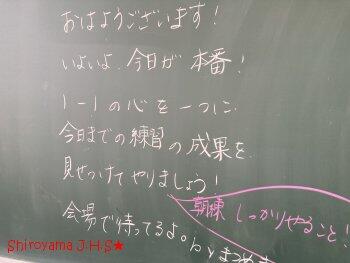 おはようございます！
いよいよ、今日が本番！
1-1の心を一つに
今日までの練習の成果を
見せつけてやりましょう！
朝練 しっかりやること！
会場で待ってるよ。by
Shiroyama J.H.S★